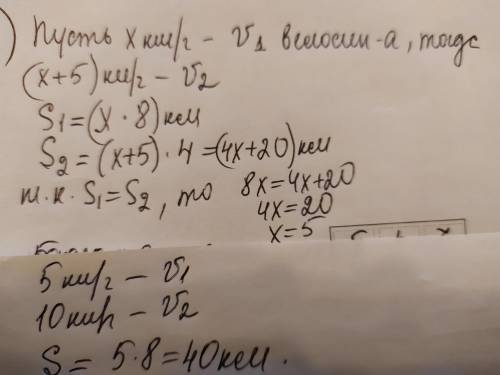 ) Пусть х км/г - V₁ велосип-а, тогда
(х+5) км/г - V₂
S₁=(х·8) км
S₂=(х+5)·4=(4х+20) км
т.к. S₁=S₂, то 8х=4х+20
4х=20
х=5
5 км/г - V₁
10 км/г - V₂
S = 5·8=40 км.